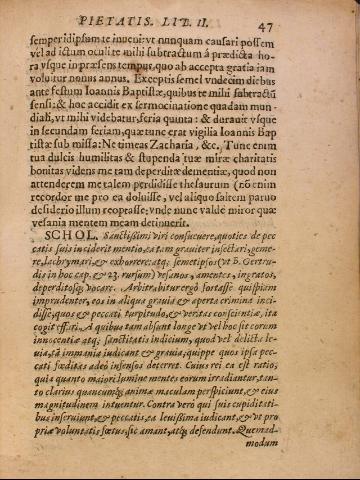 PIETATIS. LIB. II. 47
semper idipsum te inueni: vt nunquam causari possem
vel ad ictum oculi te mihi subtractum à prædicta ho-
ra vsque in præsens tempus, quo ab accepta gratia iam
voluitur nonus annus. Exceptis semel vndecim diebus
ante festum Ioannis Baptistæ, quibus te mihi subtractũ
sensi: & hoc accidit ex sermocinatione quadam mun-
diali, vt mihi videbatur, feria quinta: & durauit vsque
in secundam feriam, quæ tunc erat vigilia Ioannis Bap
tistæ sub missa: Ne timeas Zacharia, &c. Tunc enim
tua dulcis humilitas & stupenda tuæ miræ charitatis
bonitas videns me tam deperditæ dementiæ, quod non
attenderem me talem perdidisse thesaurum (nõ enim
recordor me pro ea doluisse, vel aliquo saltem paruo
desiderio illum reoptasse: vnde nunc valde miror quæ
vesania mentem meam detinuerit.
SCHOL. Sanctissimi viri consueuere, quoties de pec
catis suis inciderit mentio, ea tam grauiter insectari, geme-
re, lachrymari, & exhorrere: atq; semetipsos (vt D. Gertru-
dis in hoc cap. & 23. rursum) vesanos, amentes, ingratos,
deperditosq; vocare. Arbitrabitur ergò fortasse quispiam
imprudenter, eos in aliqua grauia & aperta crimina inci-
disse, quos & peccati turpitudo, & veritas conscientiæ, ita
cogit effari. A quibus tam absunt longe vt vel hoc sit eorum
innocentiæ atq; sanctitatis indicium, quod vel delicta le-
uia, tã immania iudicant & grauia, quippe quos ipsa pec-
cati fœditas adeò infensos deterret. Cuius rei ea est ratio,
quia quanto maiori lumine mentes eorum irradiantur, tan-
to clarius quancunq; animæ maculam perspiciunt, & eius
magnitudinem intuentur. Contra verò qui suis cupiditati-
bus inseruiunt, & peccatis, ea leuissima iudicant, & vt pro
priæ voluntatis fœtus, sic amant, atq; defendunt. Quemad-
modum